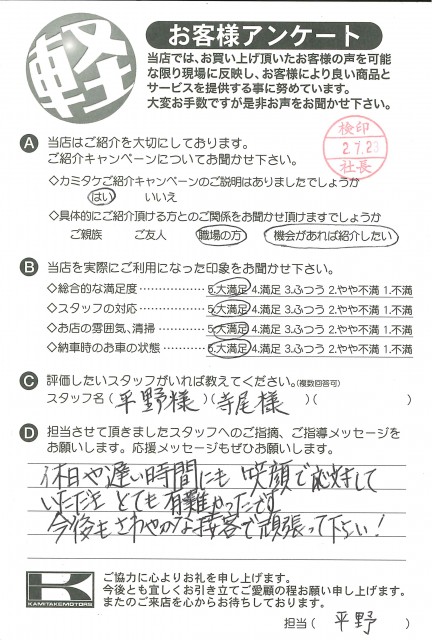 軽
お客様アンケート
当店では、お買い上げ頂いたお客様の声を可能
な限り現場に反映し、お客様により良い商品と
サービスを提供する事に努めています。
大変お手数ですが是非お声をお聞かせ下さい。
検印
2.7.23
社長
A 当店はご紹介を大切にしております。
ご紹介キャンペーンについてお聞かせ下さい。
◇カミタケご紹介キャンペーンのご説明はありましたでしょうか
はい いいえ
◇具体的にご紹介頂ける方とのご関係をお聞かせ頂けますでしょうか
ご親族 ご友人 職場の方 機会があれば紹介したい
B 当店を実際にご利用になった印象をお聞かせ下さい。
◇総合的な満足度 5.大満足 4.満足 3.ふつう 2.やや不満 1.不満
◇スタッフの対応 5.大満足 4.満足 3.ふつう 2.やや不満 1.不満
◇お店の雰囲気、清掃 5.大満足 4.満足 3.ふつう 2.やや不満 1.不満
◇納車時のお車の状態 5.大満足 4.満足 3.ふつう 2.やや不満 1.不満
C 評価したいスタッフがいれば教えてください。(複数回答可)
スタッフ名 (平野様)(寺尾様)( )
D 担当させて頂きましたスタッフへのご指摘、ご指導メッセージを
お願いします。応援メッセージもぜひお願いします。
休日や遅い時間にも 笑顔で応対して
いただき とても 有難かったです
今後も さわやかな接客で頑張って下さい!
K
KAMITAKEMOTORS
ご協力に心よりお礼を申し上げます。
今後とも宜しくお引き立てご愛顧の程お願い申し上げます。
またのご来店を心からお待ちしております。
担当( 平野 )